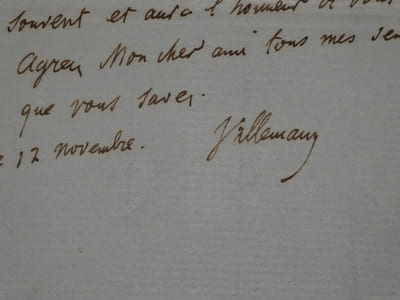 souvent et aura l'honneur de vous
Agreez Mon cher ami tous mes sen
que vous savez.
12 novembre. Villemain